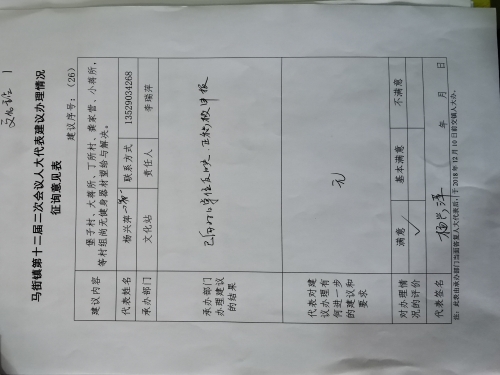 文化站 1
马街镇第十二届二次会议人大代表建议办理情况
征询意见表
建议序号:（26）
建议内容
堡子村、大蒋所、丁所村、龚家营、小蒋所,
等村组尚无健身器材望给与解决。
代表姓名
杨兴萍
联系方式
13529034268
承办部门
文化站
责任人
李瑞萍
承办部门
办理建议
的结果
已向上级单位反映,正积极申报
代表对建
议办理有
何进一步
的建议和
要求
无
对办理情
况的评价
满意 ✓
基本满意
不满意
代表签名
年 月 日
注:此表由承办部门当面答复人大代表后,于2018年12月10日前交镇人大办。